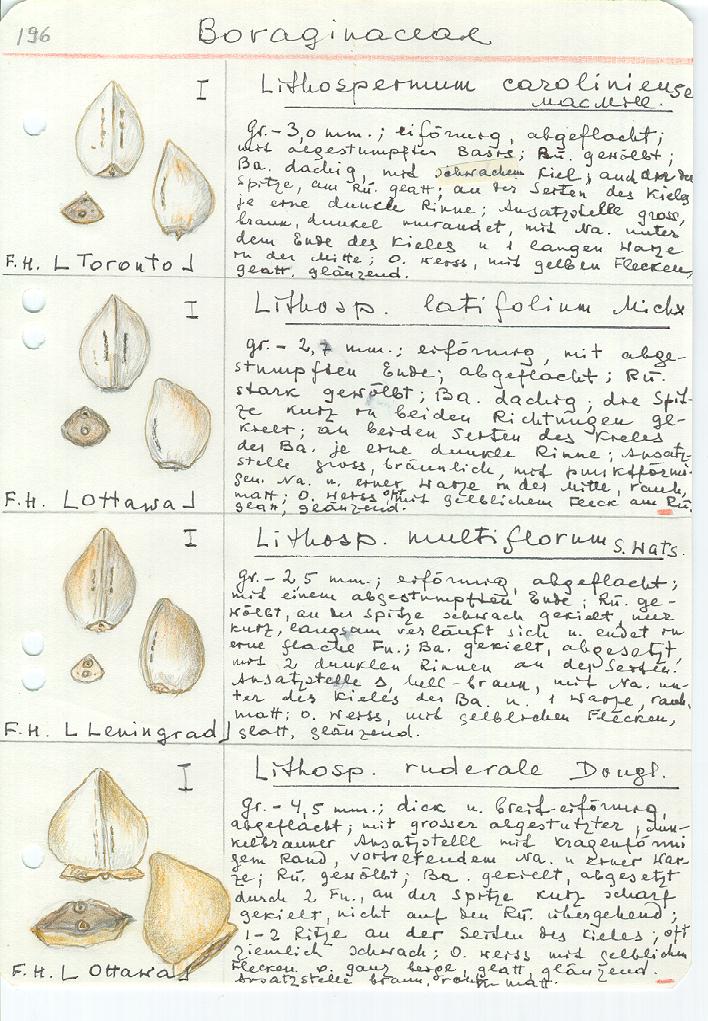 196
Boraginaceae
I
Lithospermum caroliniense
MacMill.
Gr.- 3,0 mm.; eiförmig, abgeflacht;
mit abgestumpfter Basis; Rü. gewölbt;
Ba. dachig, mit schwachem Kiel; an der
Spitze, am Rü. glatt; an der Seiten des Kieles
je eine dunkle Rinne; Ansatzstelle gross,
braun, dunkel umrandet, mit Na. unter
dem Ende des Kieles u 1 langen Warze
in der Mitte; O. weiss, mit gelben Flecken,
glatt, glänzend.
F.H. L Toronto J
I
Lithosp. latifolium Michx
Gr.- 2,7 mm.; eiförmig, mit abge-
stumpften Ende; abgeflacht; Rü.
stark gewölbt; Ba. dachig; die Spit-
ze kurz in beiden Richtungen ge-
kielt; an beiden Seiten des Kieles
der Ba. je eine dunkle Rinne; Ansatz-
stelle gross, bräunlich, mit punktförmi-
gem Na. u. einer Warze in der Mitte, rauh,
matt; O. weiss oft mit gelblichem Fleck am Rü.
glatt, glänzend.
F.H. L Ottawa J
I
Lithosp. multiflorum S. Wats.
Gr.- 2,5 mm.; eiförmig, abgeflacht;
mit einem abgestumpften Ende; Rü. ge-
wölbt, an der Spitze schwach gekielt, nur
kurz, langsam verläuft sich u. endet in
eine flache Fn.; Ba. gekielt, abgesetzt,
mit 2 dunklen Rinnen an der Seiten.
Ansatzstelle Δ, hell-braun, mit Na. un-
ter des Kieles der Ba. u. 1 Warze, rauh,
matt; O. weiss, mit gelblichen Flecken,
glatt, glänzend.
F.H. L Leningrad J
I
Lithosp. ruderale Dougl.
Gr.- 4,5 mm.; dick u. breit-eiförmig,
abgeflacht; mit grosser abgestutzter, dun-
kelbrauner Ansatzstelle mit kragenförmi
gem Rand, vortretendem Na. u einer War-
ze; Rü. gewölbt; Ba. gekielt, abgesetzt
durch 2 Fn., an der Spitze kurz scharf
gekielt, nicht auf den Rü. übergehend;
1-2 Ritze an der Seiten des Kieles; oft
ziemlich schwach; O. weiss mit gelblichen
Flecken o. ganz beige, glatt, glänzend.
Ansatzstelle braun, matt.
F.H. L Ottawa J